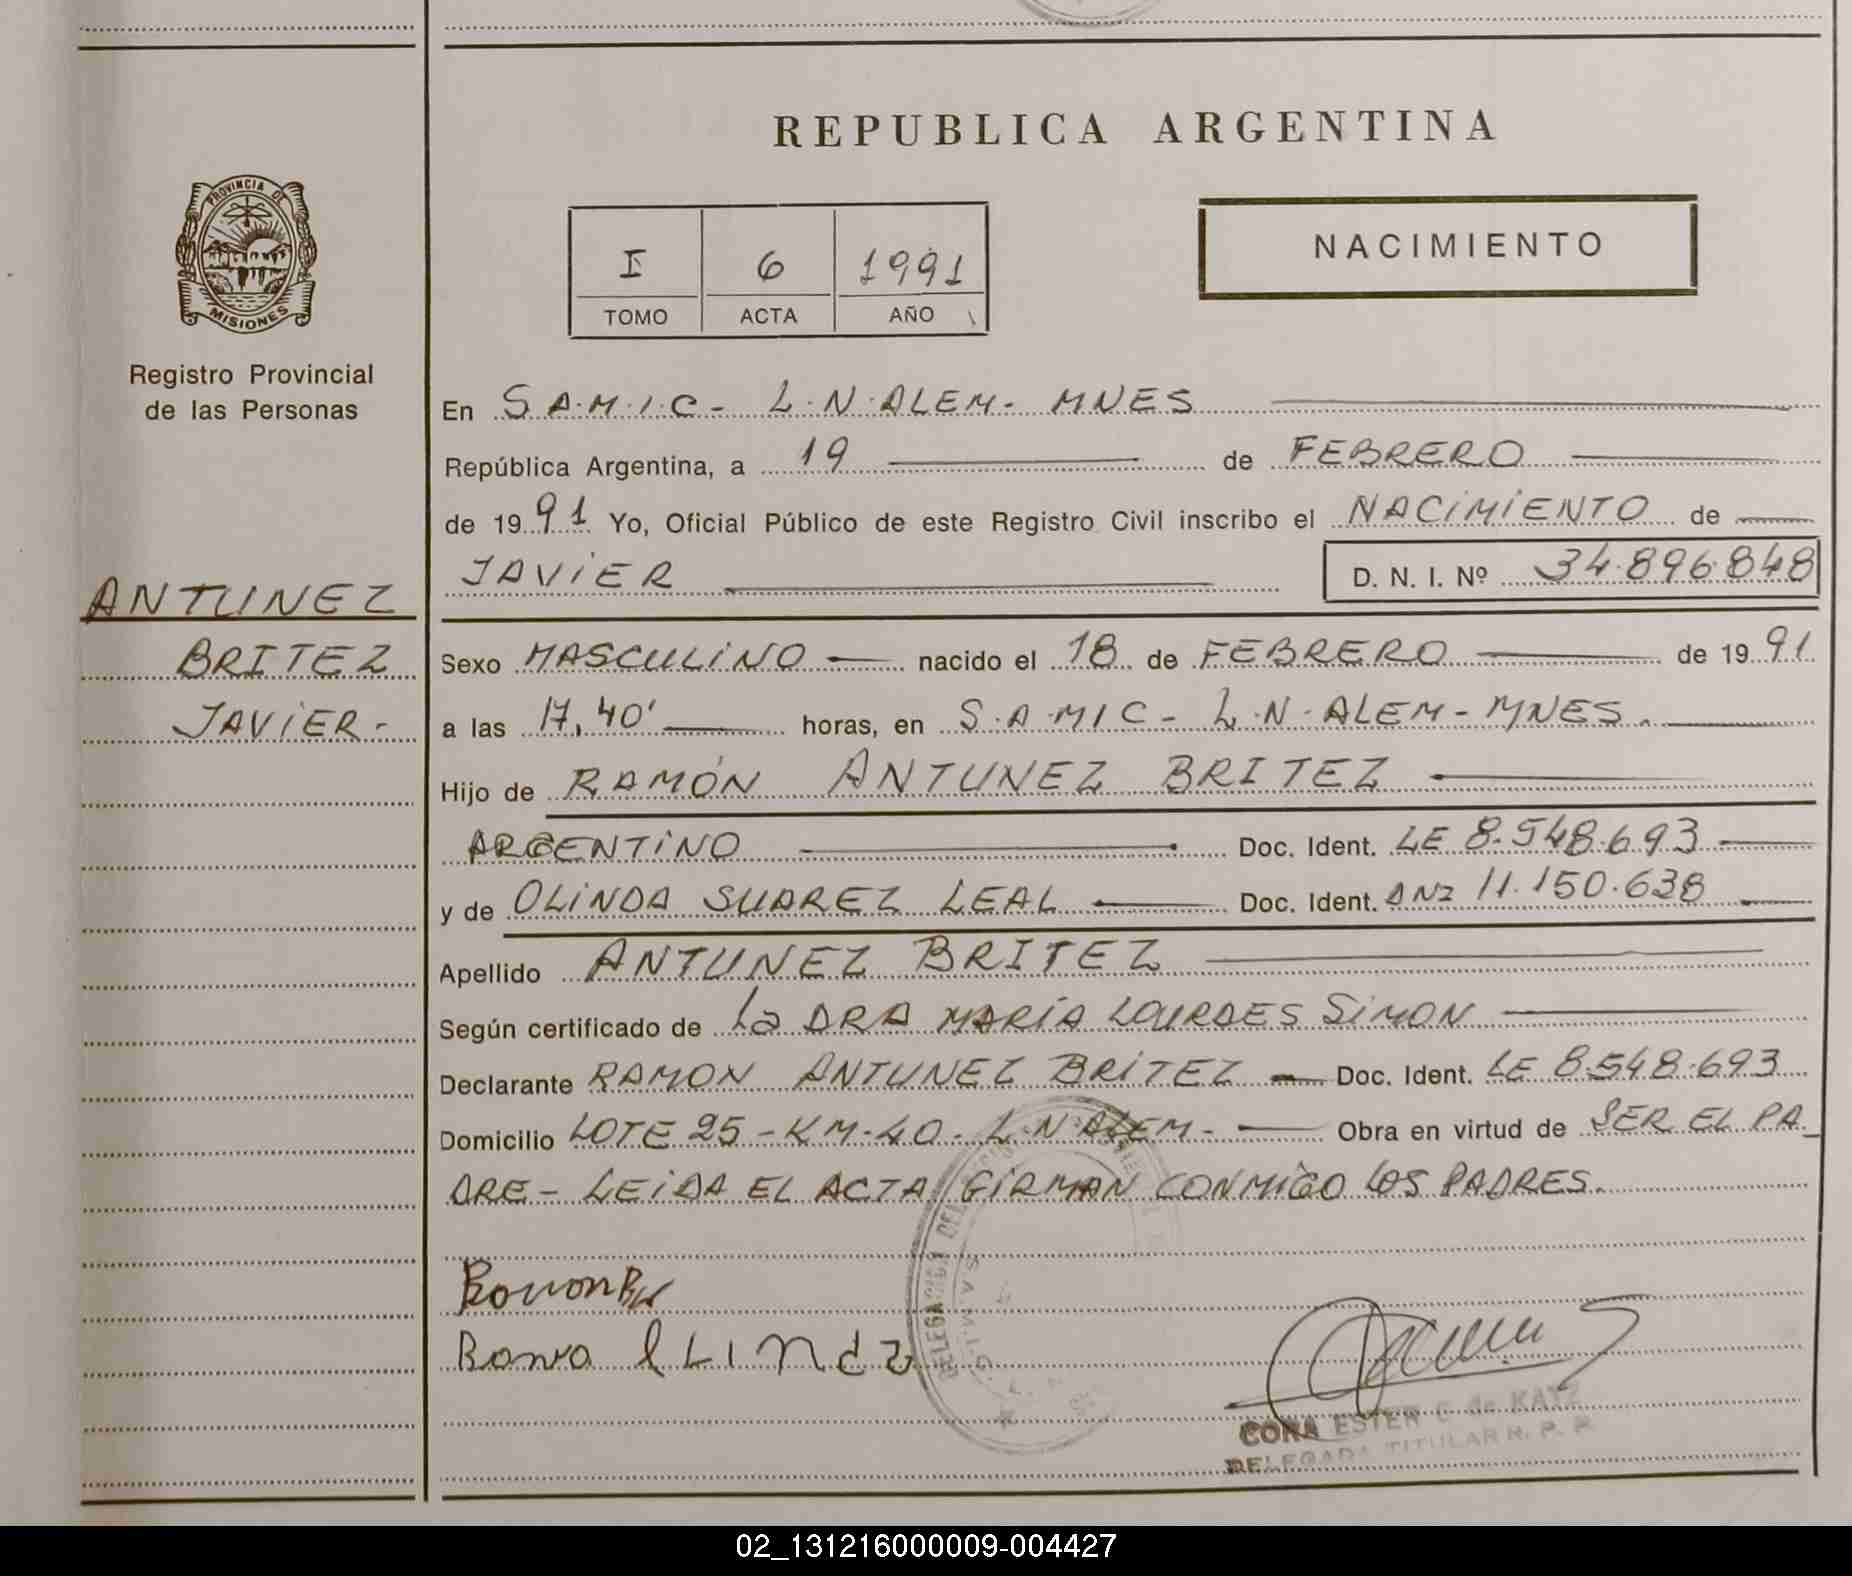 REPUBLICA ARGENTINA
PROVINCIA DE
MISIONES
Registro Provincial
de las Personas
I 6 1991
TOMO ACTA AÑO
NACIMIENTO
En S.A.M.I.C - L.N.ALEM - MNES
República Argentina, a 19 de FEBRERO
de 1991 Yo, Oficial Público de este Registro Civil inscribo el NACIMIENTO de
JAVIER D. N. I. Nº 34.896.848
ANTUNEZ
BRITEZ
JAVIER -
Sexo MASCULINO nacido el 18 de FEBRERO de 1991
a las 17,40' horas, en S.A.MIC - L.N.ALEM - MNES.
Hijo de RAMÓN ANTUNEZ BRITEZ
ARGENTINO Doc. Ident. LE 8.548.693
y de OLINDA SUAREZ LEAL Doc. Ident. DNI 11.150.638
Apellido ANTUNEZ BRITEZ
Según certificado de La DRA MARÍA LOURDES SIMON
Declarante RAMON ANTUNEZ BRITEZ Doc. Ident. LE 8.548.693
Domicilio LOTE 25 - KM-40 - L.N ALEM - Obra en virtud de SER EL PA-
DRE - LEIDA EL ACTA FIRMAN CONMIGO LOS PADRES.
DELEGACION DEL
S.A.M.I.C.
CORA ESTER C de KATZ
DELEGADA TITULAR R. P. P.
02_131216000009-004427